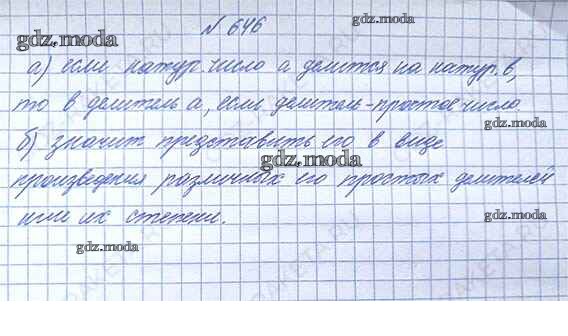 № 646
а) если натур. число а делится на натур. в,
то в делитель а, если делитель - простое число
б) значит представить его в виде
произведения различных его простых делителей
или их степени.
gdz.moda
gdz.moda
gdz.moda
gdz.moda
gdz.moda
gdz.moda
gdz.moda